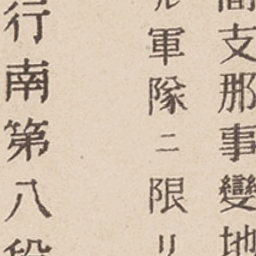 支那事變地
軍隊ニ限リ
行南第八段